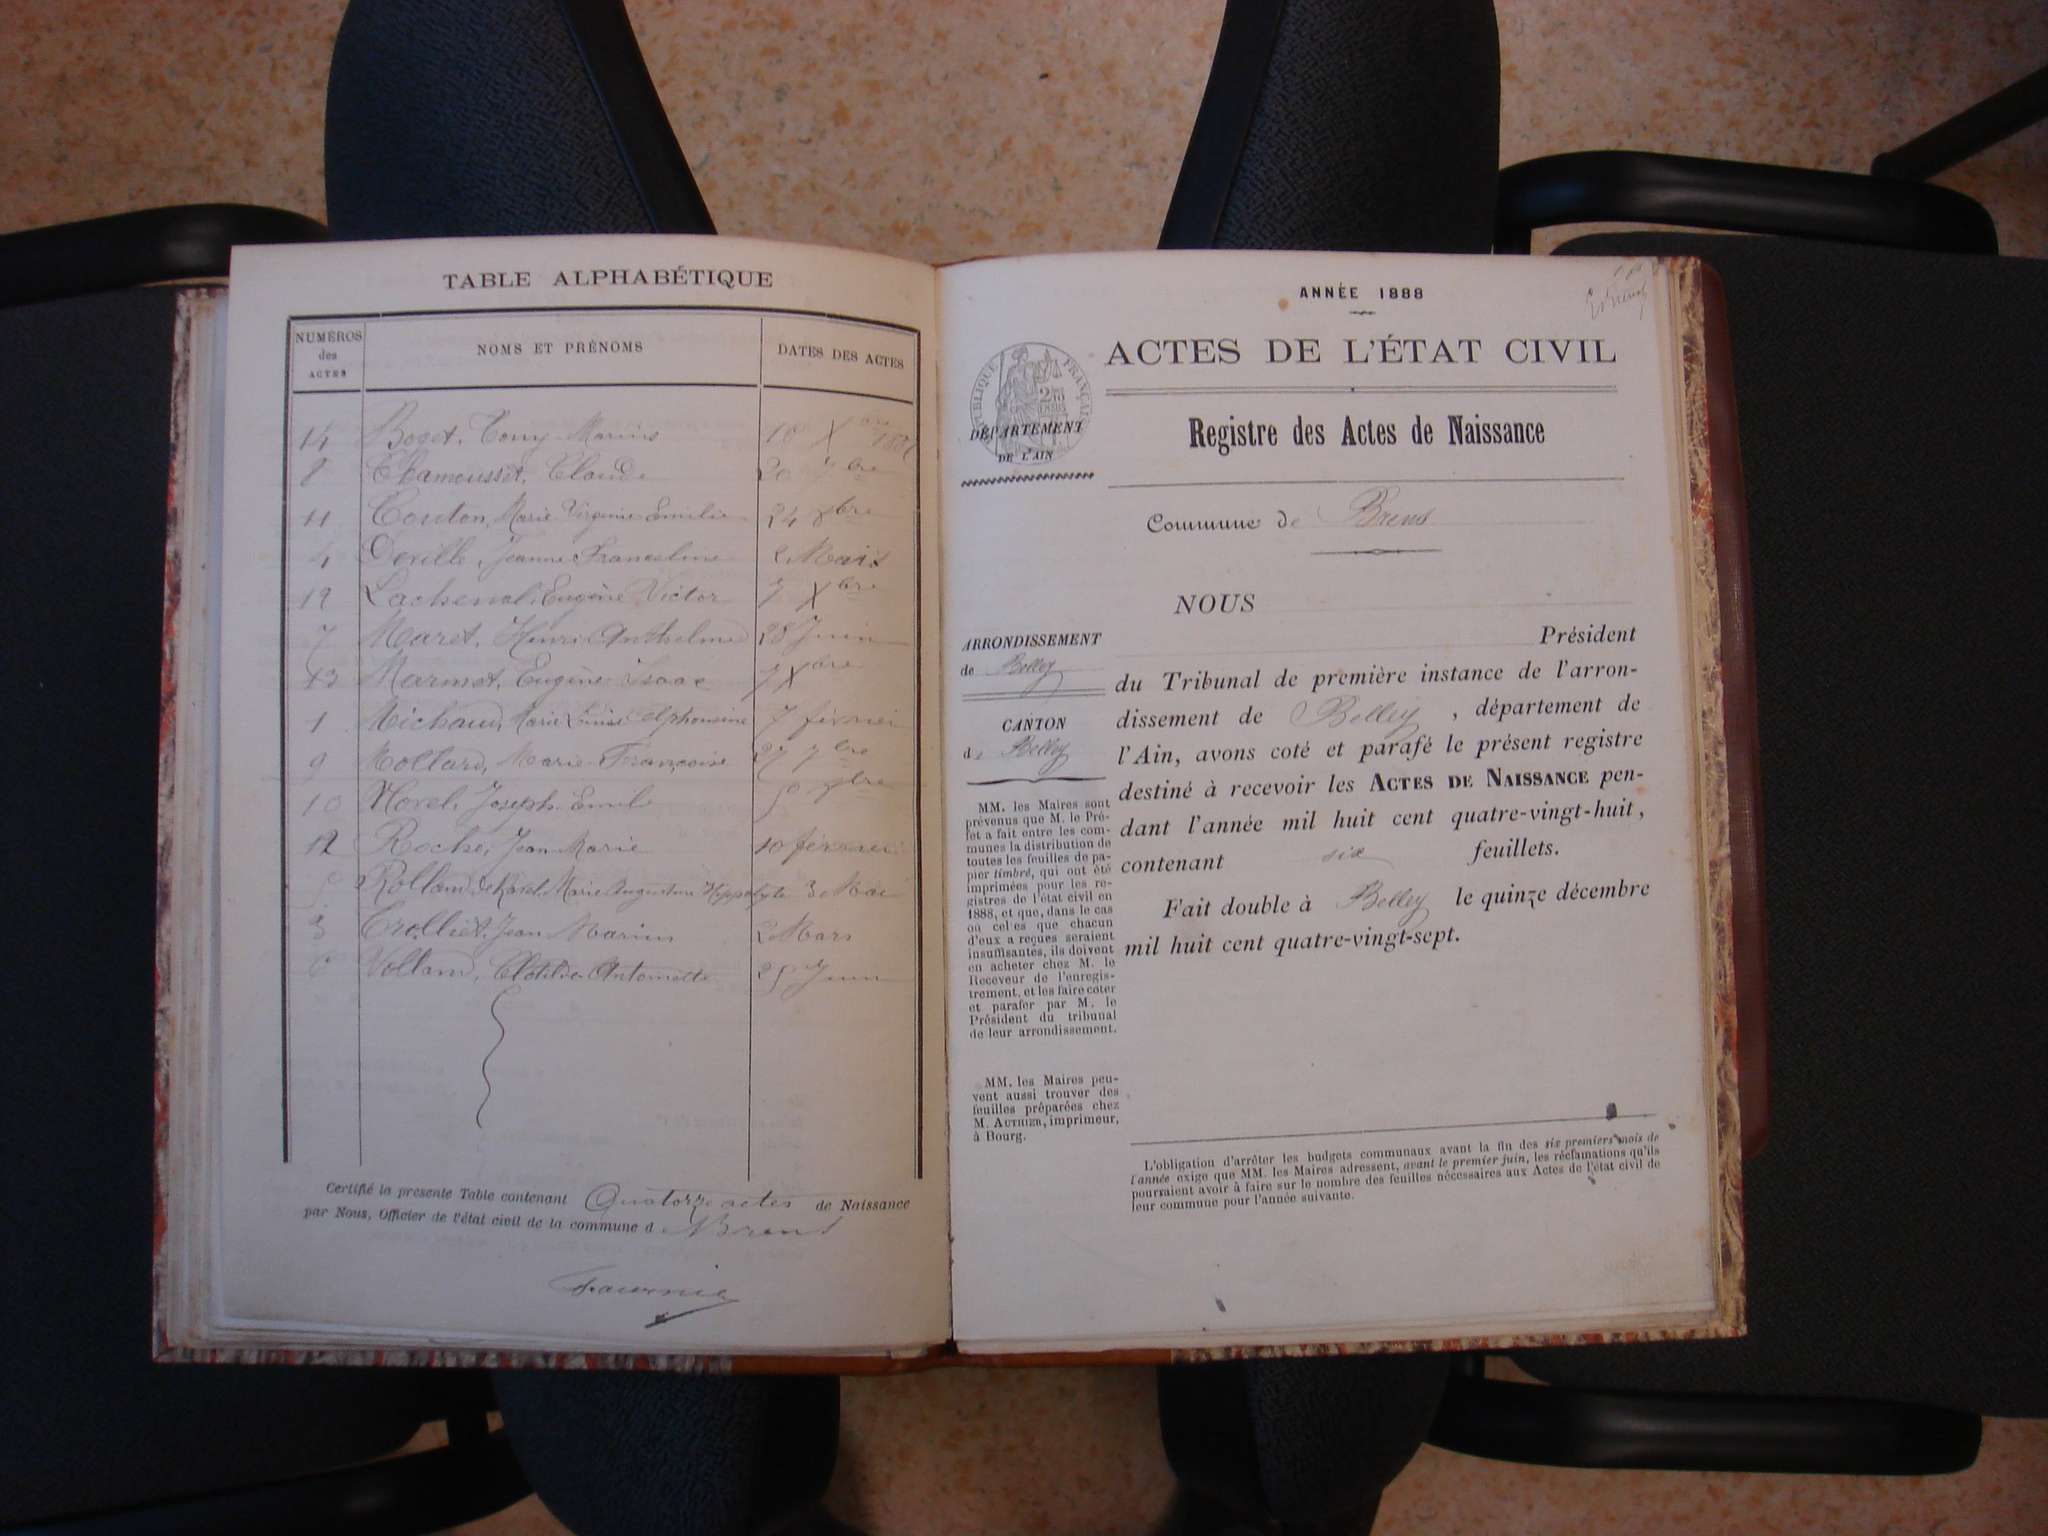 TABLE ALPHABÉTIQUE
NUMÉROS
des
ACTES
NOMS ET PRÉNOMS
DATES DES ACTES
14 Boget, Tony Marius 18 Xbre
8 Chamousset, Claude 20 7bre
11 Couton, Marie Virginie Emilie 24 8bre
4 Deville, Jeanne Franceline 2 Mars
12 Lachenal, Eugène Victor 7 Xbre
7 Maret, Henri Anthelme 28 Juin
13 Marmet, Eugène Isaac 7 Xbre
1 Michaud, Marie Louise Alphonsine 7 février
9 Mollard, Marie Françoise 27 7bre
10 Morel, Joseph Emile
12 Roche, Jean Marie 10 février
Rolland de Ravel, Marie Augustin Hippolyte 3 Mai
3 Trolliet, Jean Marius 2 Mars
6 Volland, Clotilde Antoinette 25 Juin
Certifié la présente Table contenant Quatorze actes de Naissance
par Nous, Officier de l'état civil de la commune d Brens
ANNÉE 1888
ACTES DE L'ÉTAT CIVIL
RÉPUBLIQUE FRANÇAISE
DÉPARTEMENT
DE L'AIN
Registre des Actes de Naissance
Commune de Brens
ARRONDISSEMENT
de Belley
CANTON
de Belley
MM. les Maires sont
prévenus que M. le Pré-
fet a fait entre les com-
munes la distribution de
toutes les feuilles de pa-
pier timbré, qui ont été
imprimées pour les re-
gistres de l'état civil en
1888, et que, dans le cas
où celles que chacun
d'eux a reçues seraient
insuffisantes, ils doivent
en acheter chez M. le
Receveur de l'enregis-
trement, et les faire coter
et parafer par M. le
Président du tribunal
de leur arrondissement.
MM. les Maires peu-
vent aussi trouver des
feuilles préparées chez
M. AUTHIER, imprimeur,
à Bourg.
NOUS
Président
du Tribunal de première instance de l'arron-
dissement de Belley, département de
l'Ain, avons coté et parafé le présent registre
destiné à recevoir les ACTES DE NAISSANCE pen-
dant l'année mil huit cent quatre-vingt-huit,
contenant six feuillets.
Fait double à Belley le quinze décembre
mil huit cent quatre-vingt-sept.
L'obligation d'arrêter les budgets communaux avant la fin des six premiers mois de
l'année exige que MM. les Maires adressent, avant le premier juin, les réclamations qu'ils
pourraient avoir à faire sur le nombre des feuilles nécessaires aux Actes de l'état civil de
leur commune pour l'année suivante.